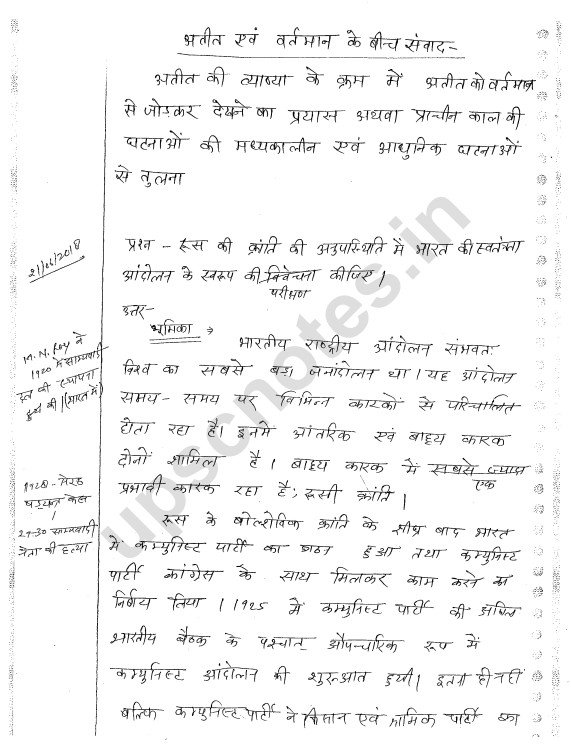 अतीत एवं वर्तमान के बीच संवाद-
अतीत की व्याख्या के क्रम में अतीत को वर्तमान
से जोडकर देखने का प्रयास अथवा प्राचीन काल की
घटनाओं की मध्यकालीन एवं आधुनिक घटनाओं
से तुलना
21/06/2018
प्रश्न - रूस की क्रांति की अनुपस्थिति में भारत की स्वतंत्रता
आंदोलन के स्वरूप की विवेचना कीजिए।
परीक्षण
उत्तर-
भूमिका →
M.N. Roy ने
1920 में साम्यवादी
दल की स्थापना
की (भारत में)
भारतीय राष्ट्रीय आंदोलन संभवतः
विश्व का सबसे बड़ा जनांदोलन था। यह आंदोलन
समय-समय पर विभिन्न कारकों से परिचालित
होता रहा है। इनमे आंतरिक एवं बाह्य कारक
दोनों शामिल है। बाह्य कारक में सबसे ज्यादा
एक
प्रभावी कारक रहा है: रूसी क्रांति।
षडयंत्र केस
29-30 साम्यवादी
नेता की हत्या
रूस के बोल्शेविक क्रांति के शीघ्र बाद भारत
में कम्युनिस्ट पार्टी का गठन हुआ तथा कम्युनिस्ट
पार्टी कांग्रेस के साथ मिलकर काम करने का
निर्णय लिया। 1925 में कम्युनिस्ट पार्टी की अखिल
भारतीय बैठक के पश्चात् औपचारिक रूप में
कम्युनिस्ट आंदोलन की शुरुआत हुयी। इतना ही नहीं
बल्कि कम्युनिस्ट पार्टी ने किसान एवं श्रमिक पार्टी का
upscnotes.in